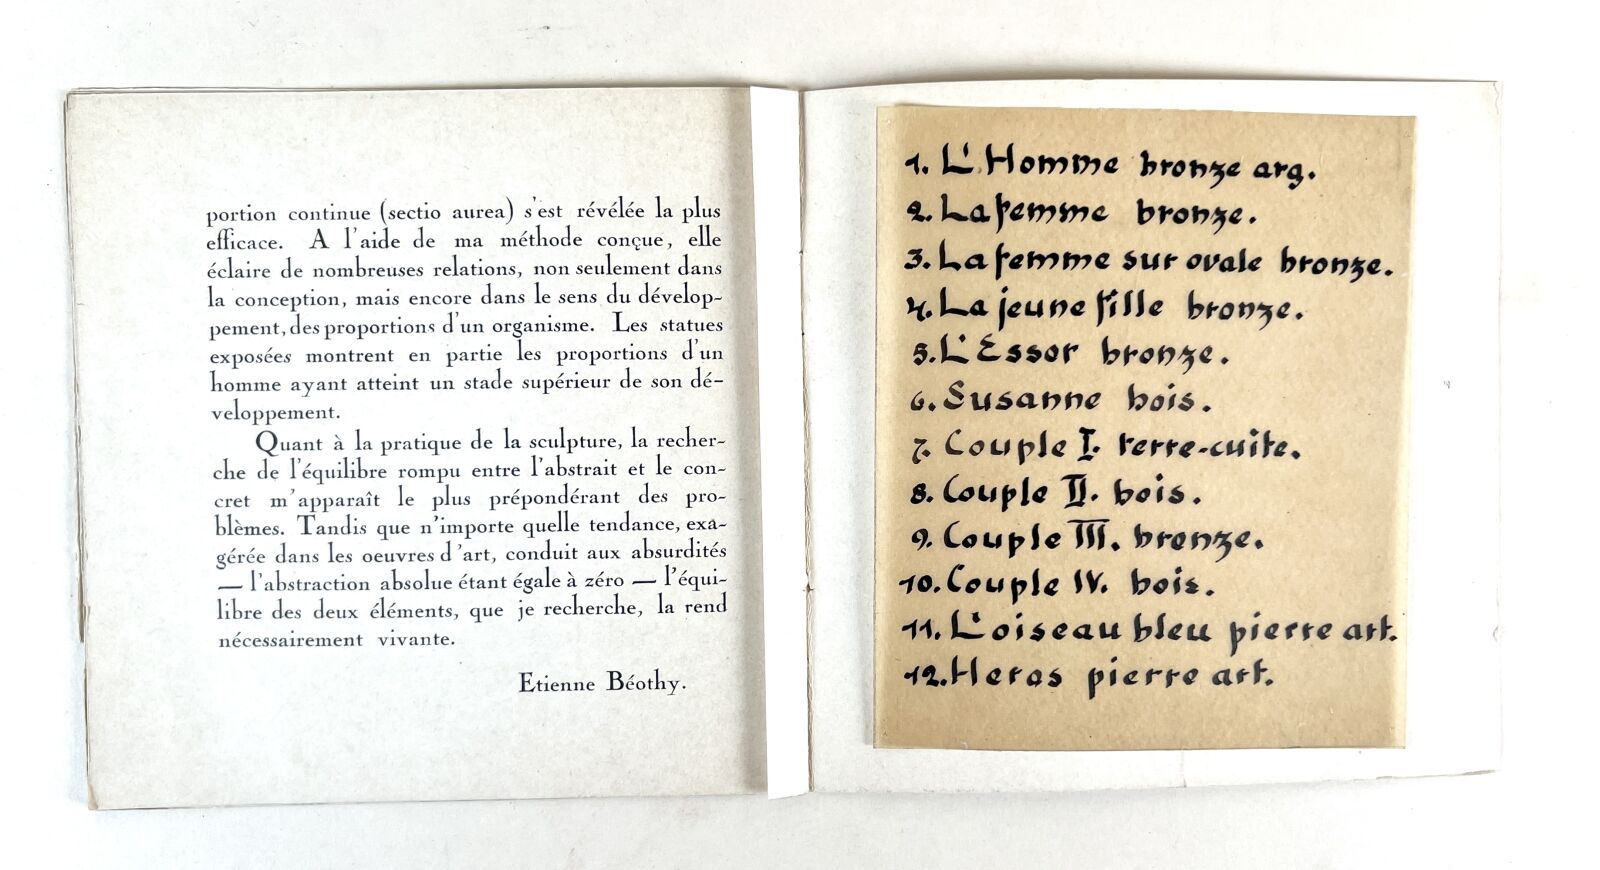 portion continue (sectio aurea) s'est révélée la plus
efficace. A l'aide de ma méthode conçue, elle
éclaire de nombreuses relations, non seulement dans
la conception, mais encore dans le sens du dévelop-
pement, des proportions d'un organisme. Les statues
exposées montrent en partie les proportions d'un
homme ayant atteint un stade supérieur de son dé-
veloppement.
Quant à la pratique de la sculpture, la recher-
che de l'équilibre rompu entre l'abstrait et le con-
cret m'apparaît le plus prépondérant des pro-
blèmes. Tandis que n'importe quelle tendance, exa-
gérée dans les oeuvres d'art, conduit aux absurdités
— l'abstraction absolue étant égale à zéro — l'équi-
libre des deux éléments, que je recherche, la rend
nécessairement vivante.
Etienne Béothy.
1. L'Homme bronze arg.
2. La femme bronze.
3. La femme sur ovale bronze.
4. La jeune fille bronze.
5. L'Essor bronze.
6. Susanne bois.
7. Couple I. terre-cuite.
8. Couple II. bois.
9. Couple III. bronze.
10. Couple IV. bois.
11. L'oiseau bleu pierre art.
12. Heros pierre art.